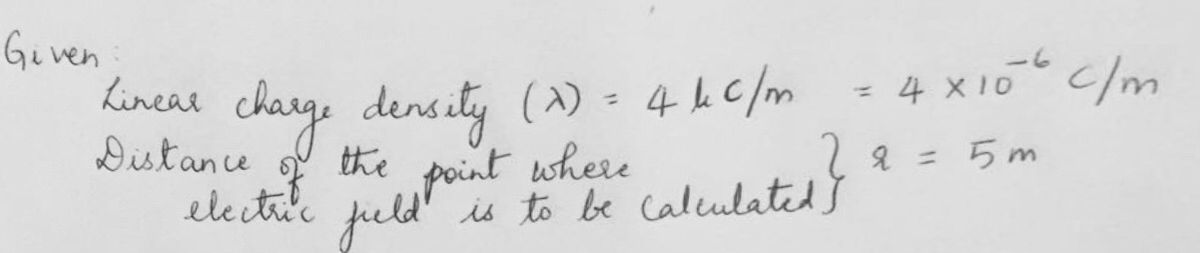 Given:
Linear charge density (λ) = 4 μC/m = 4 × 10⁻⁶ C/m
Distance of the point where
electric field is to be calculated } r = 5 m